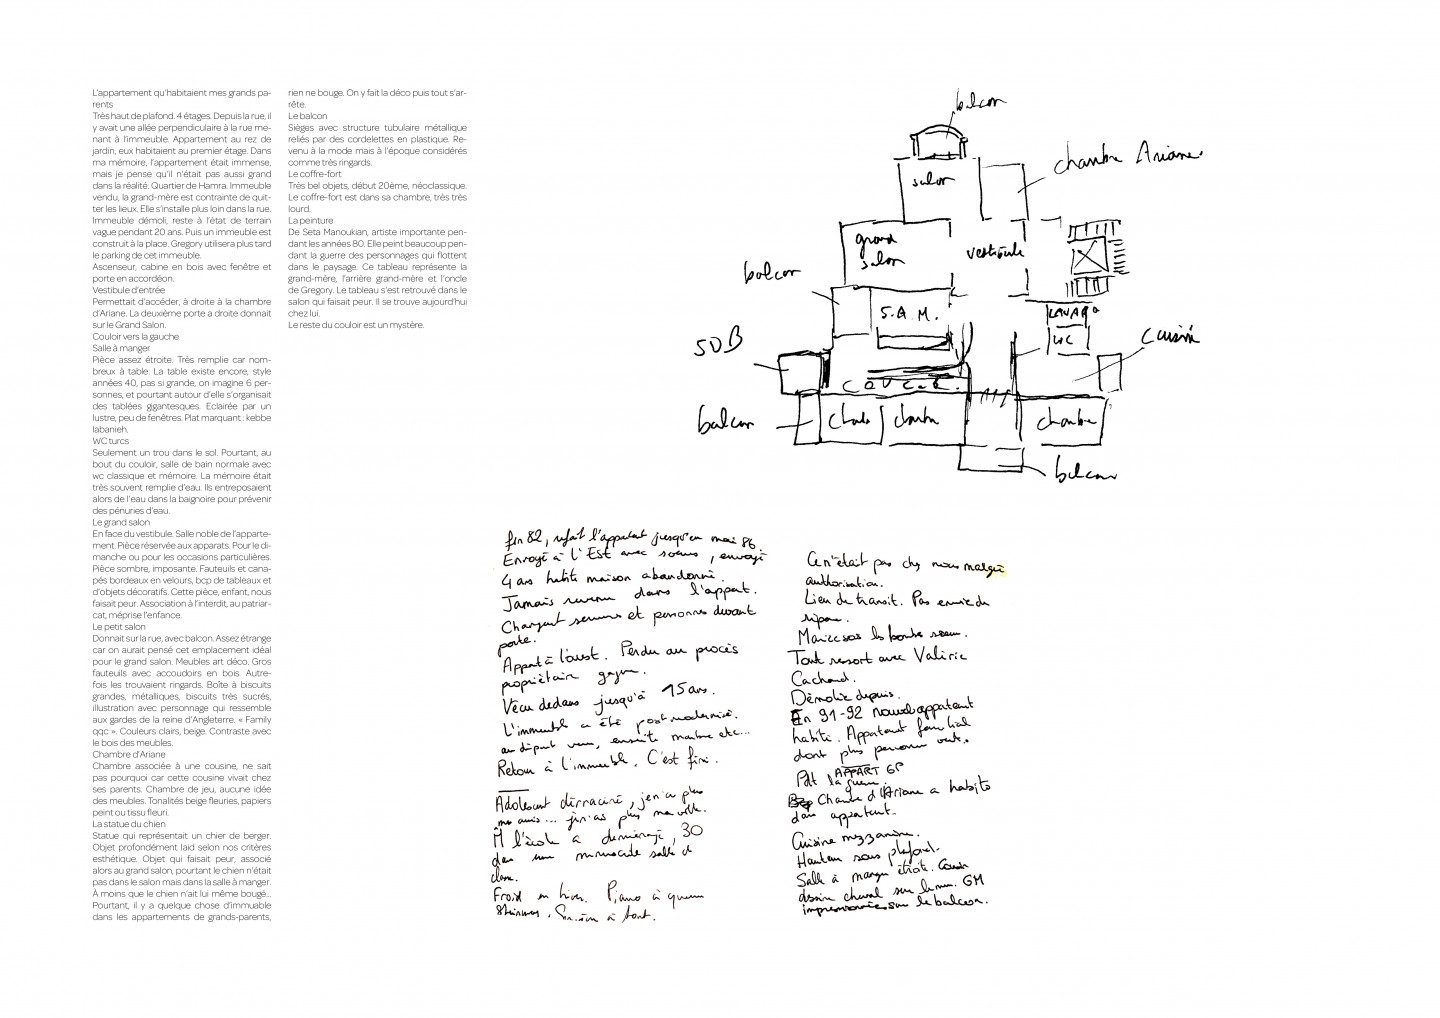 L'appartement qu'habitaient mes grands pa-
rents
Très haut de plafond. 4 étages. Depuis la rue, il
y avait une allée perpendiculaire à la rue me-
nant à l'immeuble. Appartement au rez de
jardin, eux habitaient au premier étage. Dans
ma mémoire, l'appartement était immense,
mais je pense qu'il n'était pas aussi grand
dans la réalité. Quartier de Hamra. Immeuble
vendu, la grand-mère est contrainte de quit-
ter les lieux. Elle s'installe plus loin dans la rue.
Immeuble démoli, reste à l'état de terrain
vague pendant 20 ans. Puis un immeuble est
construit à la place. Gregory utilisera plus tard
le parking de cet immeuble.
Ascenseur, cabine en bois avec fenêtre et
porte en accordéon.
Vestibule d'entrée
Permettait d'accéder, à droite à la chambre
d'Ariane. La deuxième porte a droite donnait
sur le Grand Salon.
Couloir vers la gauche
Salle à manger
Pièce assez étroite. Très remplie car nom-
breux à table. La table existe encore, style
années 40, pas si grande, on imagine 6 per-
sonnes, et pourtant autour d'elle s'organisait
des tablées gigantesques. Eclairée par un
lustre, peu de fenêtres. Plat marquant : kebbe
labanieh.
WC turcs
Seulement un trou dans le sol. Pourtant, au
bout du couloir, salle de bain normale avec
wc classique et mémoire. La mémoire était
très souvent remplie d'eau. Ils entreposaient
alors de l'eau dans la baignoire pour prévenir
des pénuries d'eau.
Le grand salon
En face du vestibule. Salle noble de l'apparte-
ment. Pièce réservée aux apparats. Pour le di-
manche ou pour les occasions particulières.
Pièce sombre, imposante. Fauteuils et cana-
pés bordeaux en velours, bcp de tableaux et
d'objets décoratifs. Cette pièce, enfant, nous
faisait peur. Association à l'interdit, au patriar-
cat, méprise l'enfance.
Le petit salon
Donnait sur la rue, avec balcon. Assez étrange
car on aurait pensé cet emplacement idéal
pour le grand salon. Meubles art déco. Gros
fauteuils avec accoudoirs en bois. Autre-
fois les trouvaient ringards. Boîte à biscuits
grandes, métalliques, biscuits très sucrés,
illustration avec personnage qui ressemble
aux gardes de la reine d'Angleterre. « Family
qqc ». Couleurs clairs, beige. Contraste avec
le bois des meubles.
Chambre d'Ariane
Chambre associée à une cousine, ne sait
pas pourquoi car cette cousine vivait chez
ses parents. Chambre de jeu, aucune idée
des meubles. Tonalités beige fleuries, papiers
peint ou tissu fleuri.
La statue du chien
Statue qui représentait un chier de berger.
Objet profondément laid selon nos critères
esthétique. Objet qui faisait peur, associé
alors au grand salon, pourtant le chien n'était
pas dans le salon mais dans la salle à manger.
À moins que le chien n'ait lui même bougé...
Pourtant, il y a quelque chose d'immuable
dans les appartements de grands-parents,
rien ne bouge. On y fait la déco puis tout s'ar-
rête.
Le balcon
Sièges avec structure tubulaire métallique
reliés par des cordelettes en plastique. Re-
venu à la mode mais à l'époque considérés
comme très ringards.
Le coffre-fort
Très bel objets, début 20ème, néoclassique.
Le coffre-fort est dans sa chambre, très très
lourd.
La peinture
De Seta Manoukian, artiste importante pen-
dant les années 80. Elle peint beaucoup pen-
dant la guerre des personnages qui flottent
dans le paysage. Ce tableau représente la
grand-mère, l'arrière grand-mère et l'oncle
de Gregory. Le tableau s'est retrouvé dans le
salon qui faisait peur. Il se trouve aujourd'hui
chez lui.
Le reste du couloir est un mystère.
balcon
chambre Ariane
salon
grand
salon
vestibule
balcon
S.A.M.
LAVABO
WC
SDB
cuisine
balcon
chambre
chambre
balcon
fin 82, refait l'appartement jusqu'en mai 86
Envoyé à l'Est avec soeurs, envoyé
4 ans habite maison abandonné.
Jamais revenu dans l'appart.
Changent serrures et personnes devant
porte.
Appart à l'ouest. Perdu au procès
propriétaire gagne.
Vécu dedans jusqu'à 15 ans.
L'immeuble a été postmodernisé.
au départ, ensuite marbre etc...
Retour à l'immeuble. C'est fini.
Adolescent déraciné, j'en ai plus
mes amis... j'ai plus ma ville.
l'école a déménagé, 30
dans une minuscule salle de
classe.
Froid en hiver. Piano à queue
Ce n'était pas chez nous malgré
authorisation.
Lieu de transit. Pas envie de
Tout ressort avec Valérie
Cachard.
Démolie depuis.
En 91-92 nouvel appartement
habité. Appartement familial
dont plus personne veut.
APPART GP
Pdt la guerre.
Chambre d'Ariane a habité
dans appartement.
Cuisine mezzanine.
Hauteur sous plafond.
Salle à manger étroite. Cousin
dessine cheval sur le mur. GM
impressionnée sur le balcon.